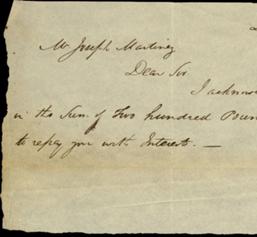 Mr Joseph Martinez
Dear Sir
I acknow
in the Sum of Two hundred Poun
to repay you with Interest. —